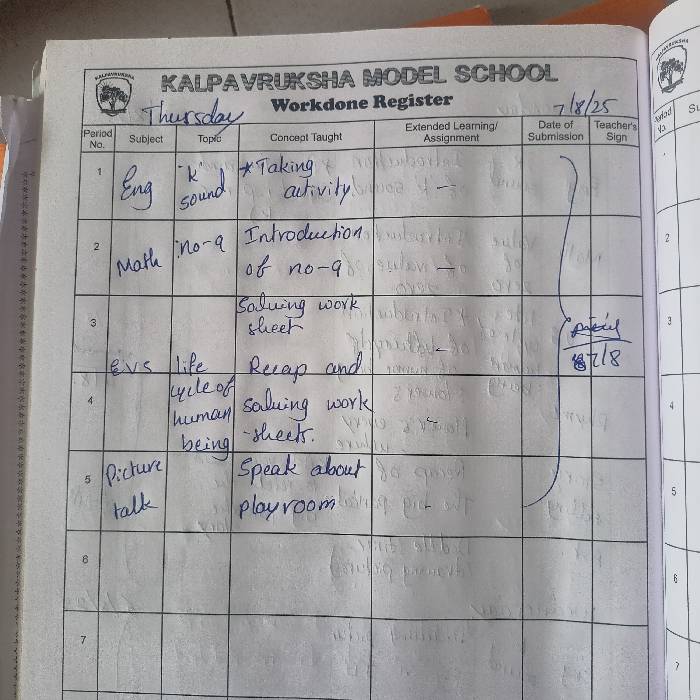 KALPAVRUKSHA
KALPAVRUKSHA MODEL SCHOOL
Workdone Register
Thursday
7/8/25
Period No.
Subject
Topic
Concept Taught
Extended Learning/ Assignment
Date of Submission
Teacher's Sign
1
Eng
'k' sound
*Taking activity
-
2
Math
no-9
Introduction of no-9
-
Soluing work sheet
3
EVS
life cycle of human being
Recap and soluing work -sheets.
-
7/8
4
-
5
Picture talk
Speak about playroom
-
6
7
KALPAVRUKSHA
Period No.
Su
2
3
4
5
6
7